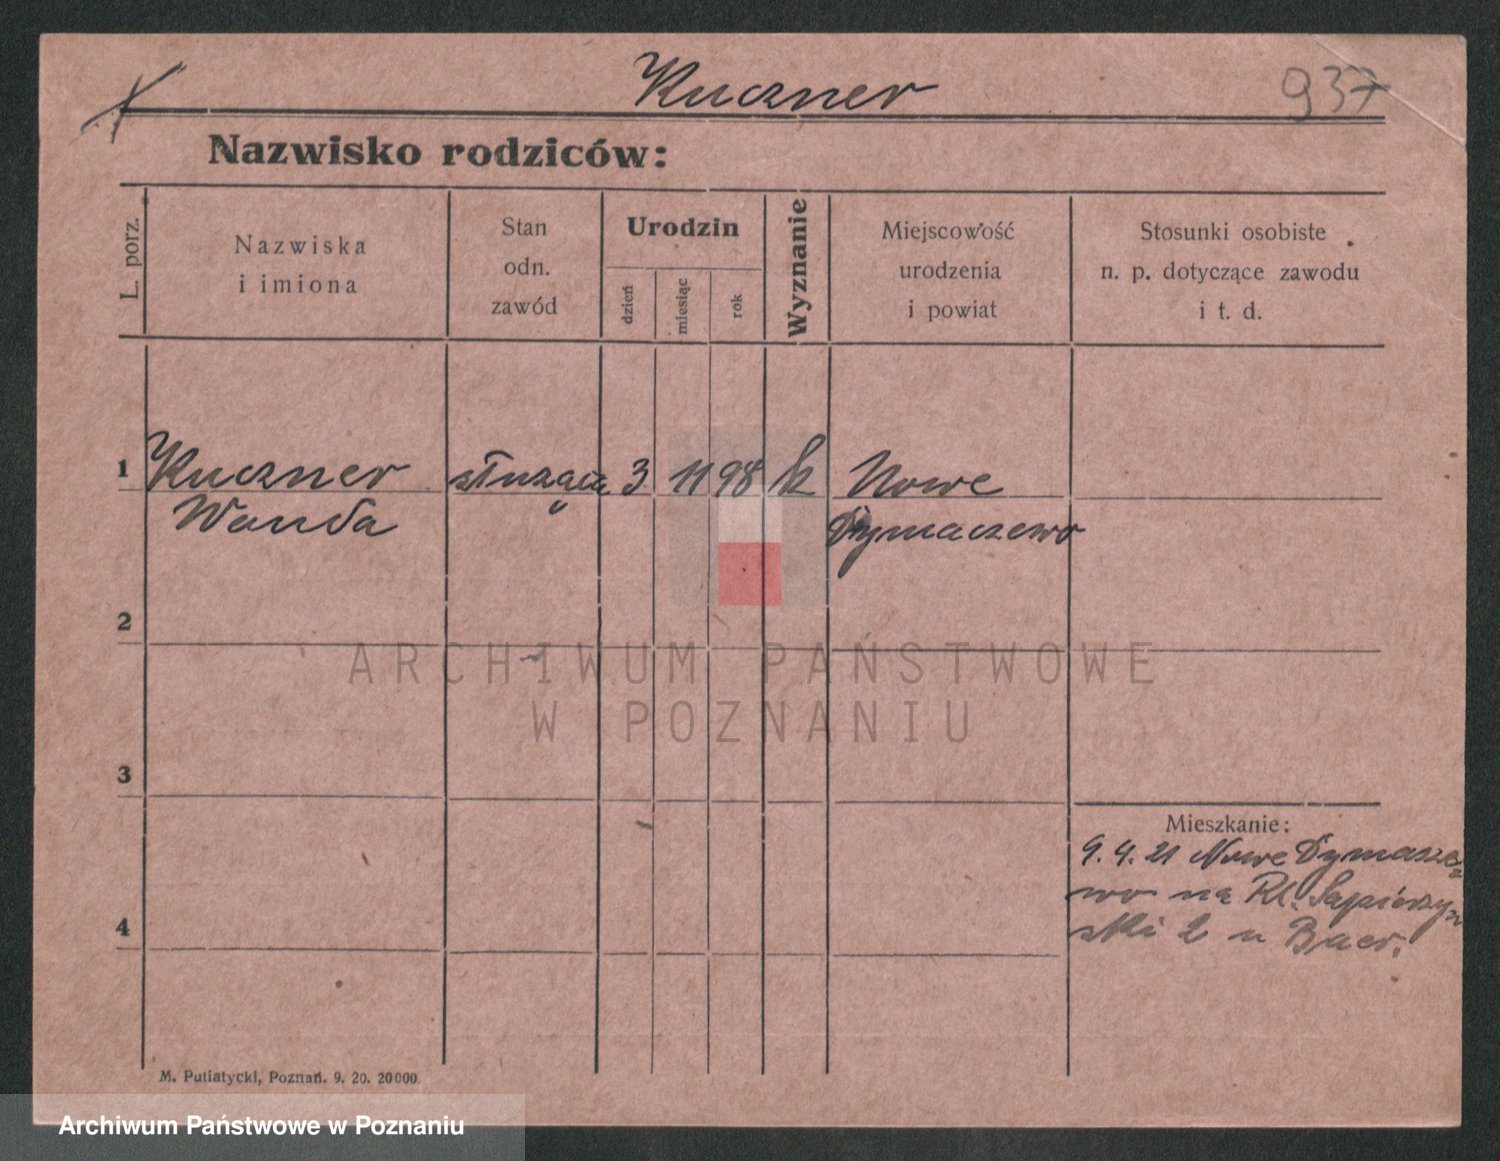 Kuczner
937
Nazwisko rodziców:
L. porz.
Nazwiska
i imiona
Stan
odn.
zawód
Urodzin
dzień
miesiąc
rok
Wyznanie
Miejscowość
urodzenia
i powiat
Stosunki osobiste
n. p. dotyczące zawodu
i t. d.
1 Kuczner służąca 3 11 98 k Nowe
Wanda Dymaczewo
2
ARCHIWUM PAŃSTWOWE
W POZNANIU
3
Mieszkanie:
9. 4. 21 Nowe Dymacze=
wo na Pl. Sapieżyń
4
ski 2 u Baer.
M. Putiatycki, Poznań. 9. 20. 20000.
Archiwum Państwowe w Poznaniu